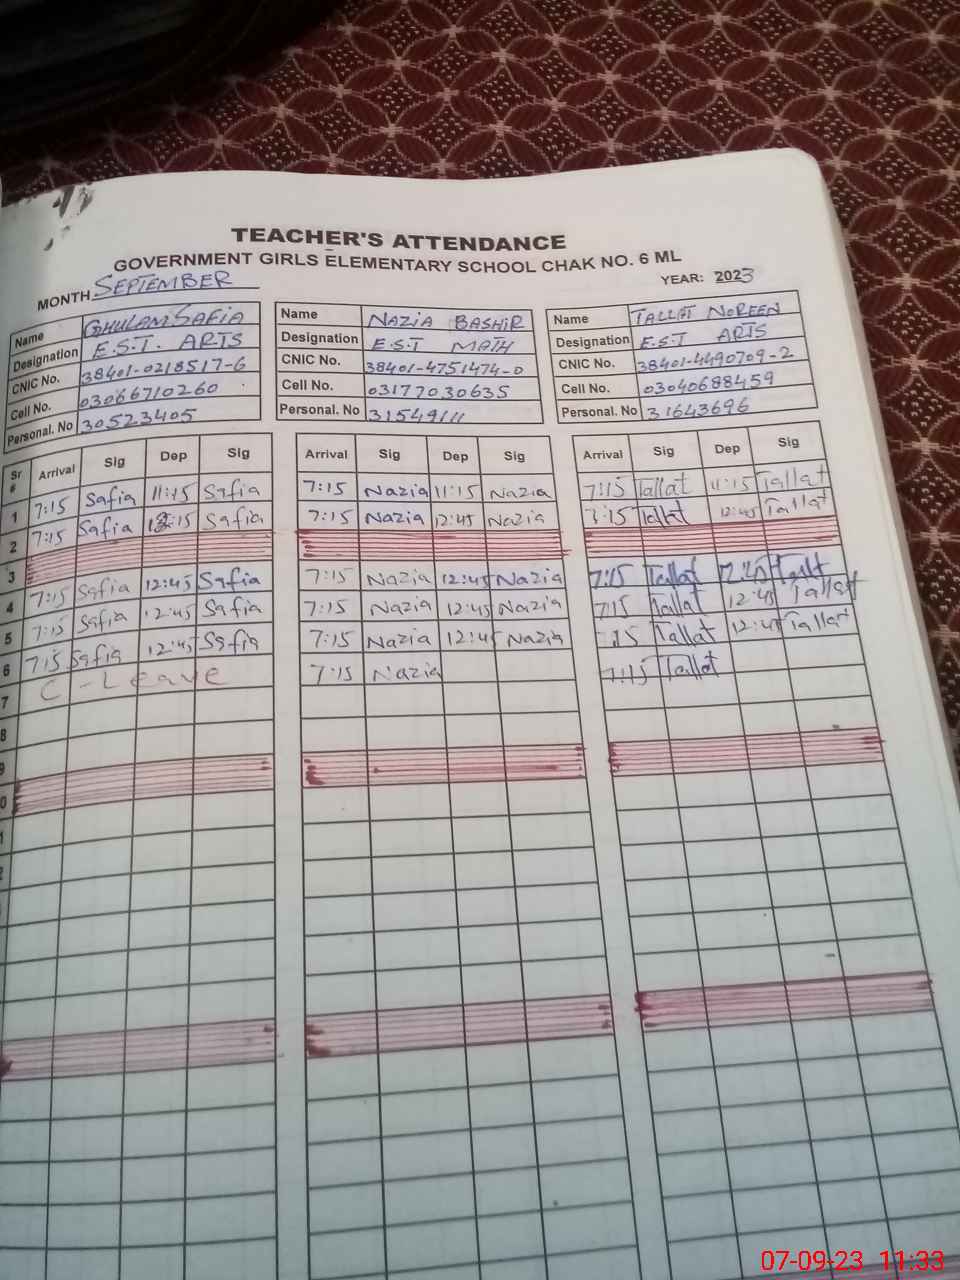 TEACHER'S ATTENDANCE
GOVERNMENT GIRLS ELEMENTARY SCHOOL CHAK NO. 6 ML
MONTH SEPTEMBER YEAR: 2023
Name GHULAM SAFIA Name NAZIA BASHIR Name TALLAT NOREEN
Designation E.S.T. ARTS Designation E.S.T MATH Designation E.S.T ARTS
CNIC No. 38401-0218517-6 CNIC No. 38401-4751474-0 CNIC No. 38401-4490709-2
Cell No. 03066710260 Cell No. 03177030635 Cell No. 03040688459
Personal. No 30523405 Personal. No 31549111 Personal. No 31643696
Sr # Arrival Sig Dep Sig Arrival Sig Dep Sig Arrival Sig Dep Sig
1 7:15 Safia 11:15 Safia 7:15 Nazia 11:15 Nazia 7:15 Tallat 11:15 Tallat
2 7:15 Safia :15 Safia 7:15 Nazia 12:45 Nazia 7:15 Tallat 12:45 Tallat
3
4 7:15 Safia 12:45 Safia 7:15 Nazia 12:45 Nazia 7:15 Tallat 12:45 Tallat
5 7:15 Safia 12:45 Safia 7:15 Nazia 12:45 Nazia 7:15 Tallat 12:45 Tallat
6 7:15 Safia 12:45 Safia 7:15 Nazia 12:45 Nazia 7:15 Tallat 12:45 Tallat
7 C-Leave 7:15 Nazia 7:15 Tallat
8
9
0
1
2
07-09-23 11:33